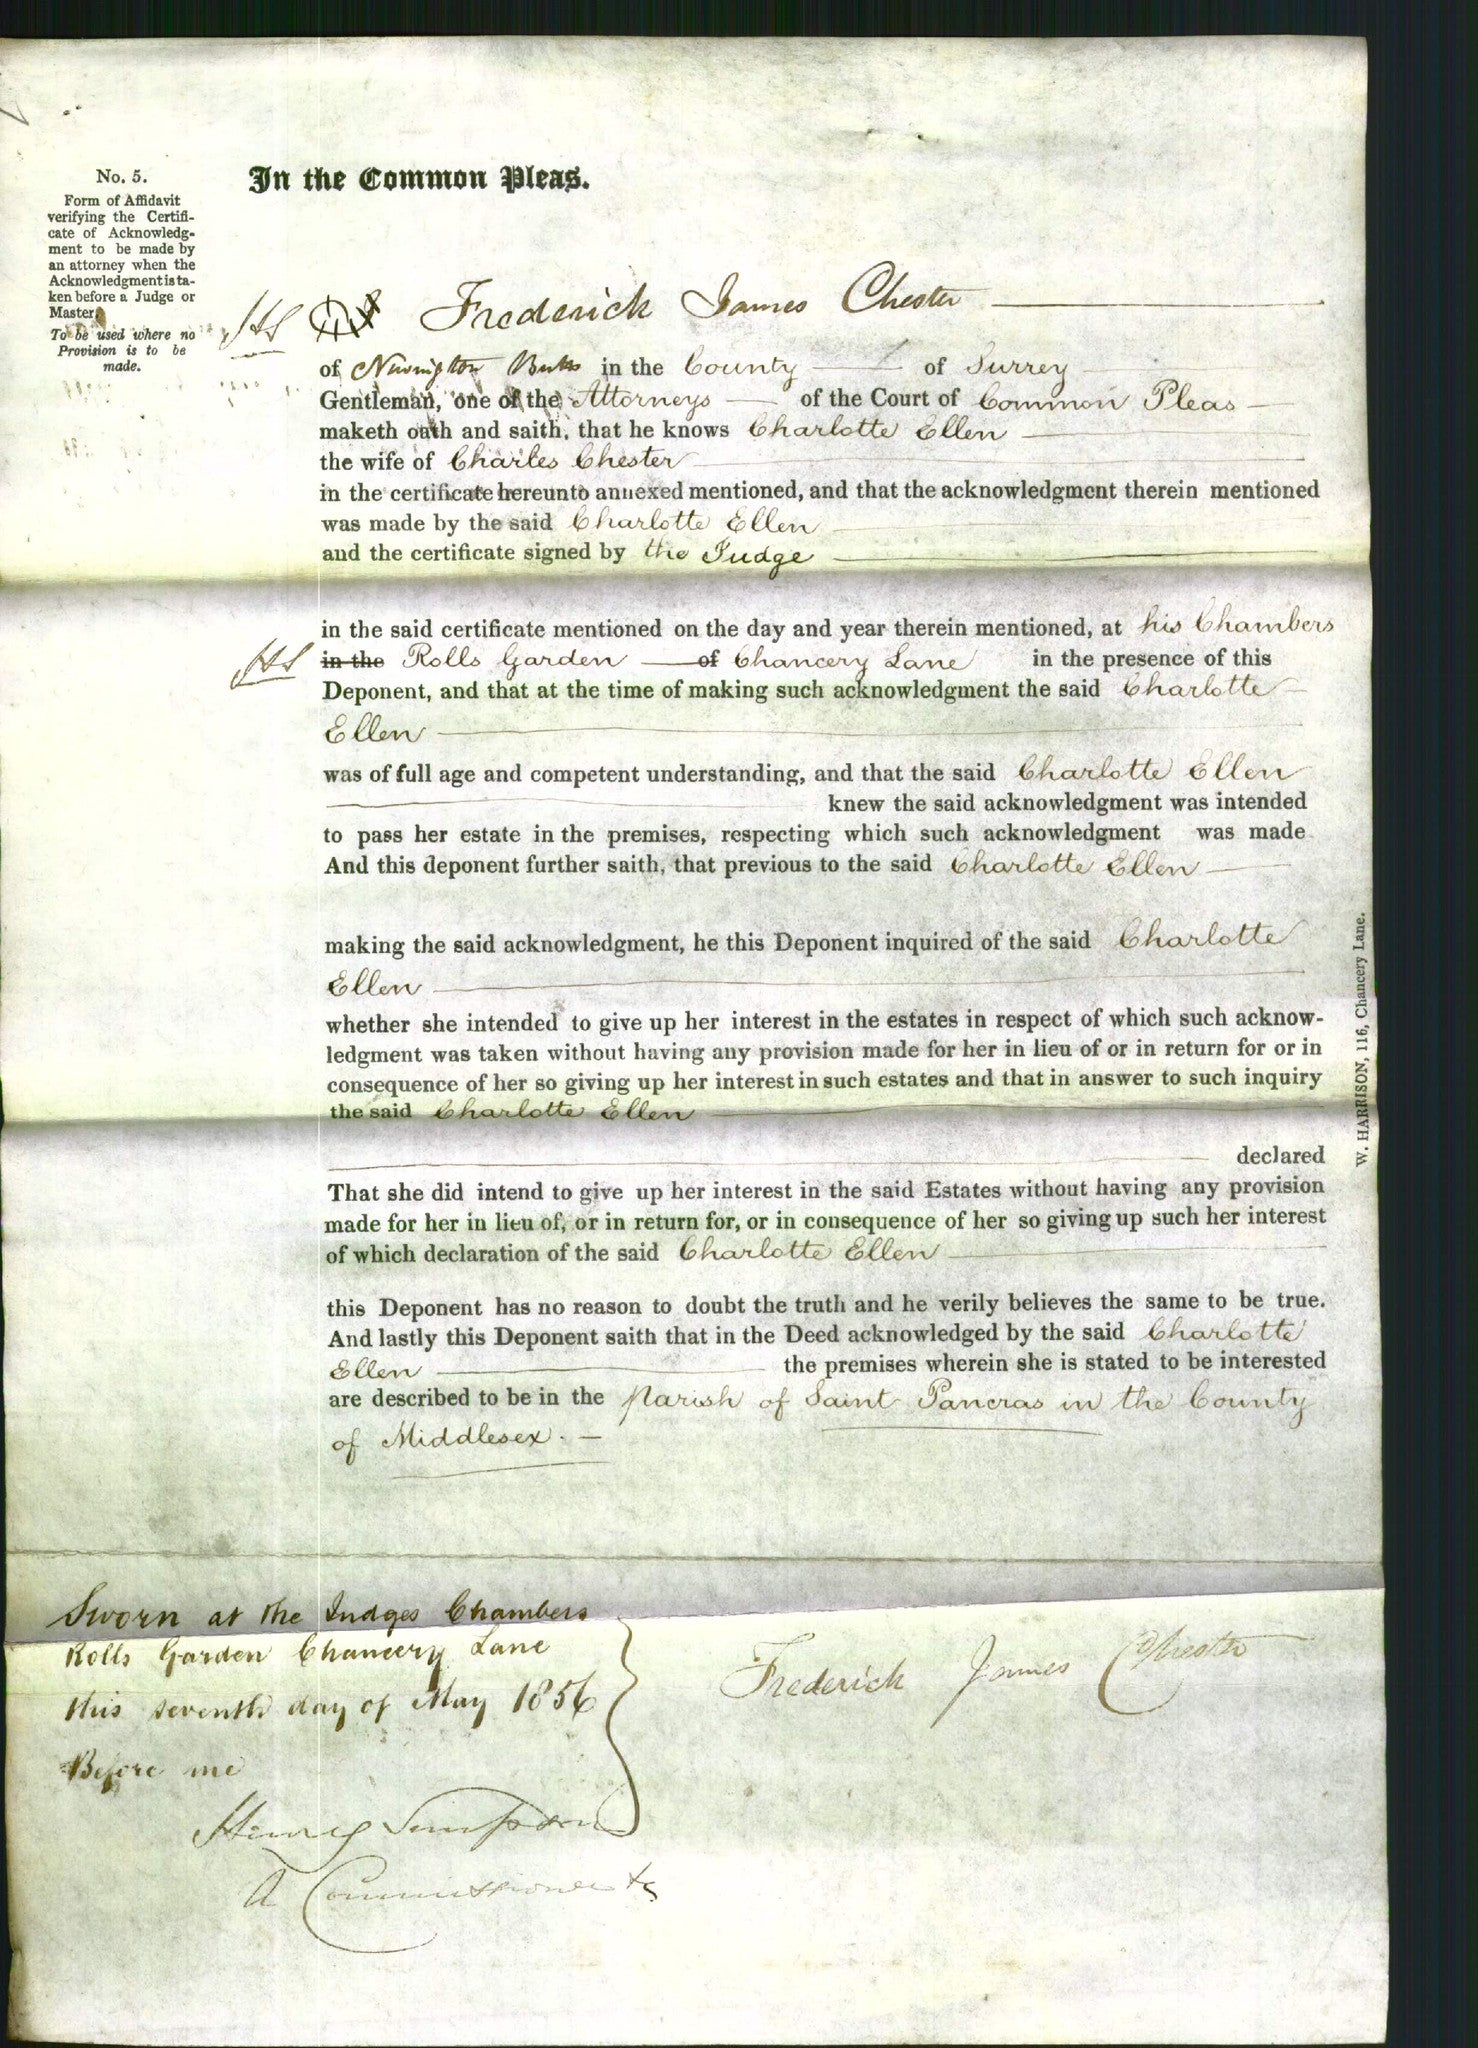 No. 5.
Form of Affidavit
verifying the Certifi-
cate of Acknowledg-
ment to be made by
an attorney when the
Acknowledgment is ta-
ken before a Judge or
Master.
To be used where no
Provision is to be
made.
In the Common Pleas.
HS
Frederick James Chester
of Newington Butts in the County of Surrey
Gentleman, one of the Attorneys of the Court of Common Pleas
maketh oath and saith, that he knows Charlotte Ellen
the wife of Charles Chester
in the certificate hereunto annexed mentioned, and that the acknowledgment therein mentioned
was made by the said Charlotte Ellen
and the certificate signed by the Judge
in the said certificate mentioned on the day and year therein mentioned, at his Chambers
HS
in the Rolls Garden of Chancery Lane in the presence of this
Deponent, and that at the time of making such acknowledgment the said Charlotte
Ellen
was of full age and competent understanding, and that the said Charlotte Ellen
knew the said acknowledgment was intended
to pass her estate in the premises, respecting which such acknowledgment was made
And this deponent further saith, that previous to the said Charlotte Ellen
making the said acknowledgment, he this Deponent inquired of the said Charlotte
Ellen
whether she intended to give up her interest in the estates in respect of which such acknow-
ledgment was taken without having any provision made for her in lieu of or in return for or in
consequence of her so giving up her interest in such estates and that in answer to such inquiry
the said Charlotte Ellen
declared
That she did intend to give up her interest in the said Estates without having any provision
made for her in lieu of, or in return for, or in consequence of her so giving up such her interest
of which declaration of the said Charlotte Ellen
this Deponent has no reason to doubt the truth and he verily believes the same to be true.
And lastly this Deponent saith that in the Deed acknowledged by the said Charlotte
Ellen the premises wherein she is stated to be interested
are described to be in the parish of Saint Pancras in the County
of Middlesex.
W. HARRISON, 116, Chancery Lane.
Sworn at the Judges Chambers
Rolls Garden Chancery Lane
this seventh day of May 1856
Before me
Henry Simpson
A Commissioner &c
Frederick James Chester